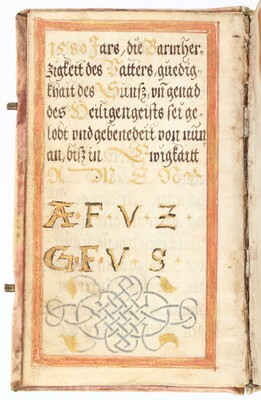 1580 Jars, die Barmher¬
zigkeit des Vatters, guedig¬
khait des Sunß, vn̄ genad
des Heiligengeists sei ge¬
lobt vnd gebenedeit von nun
an, biß in Ewigkaitt
A M E N
Æ · F · V · Z
G · F · V · S ·